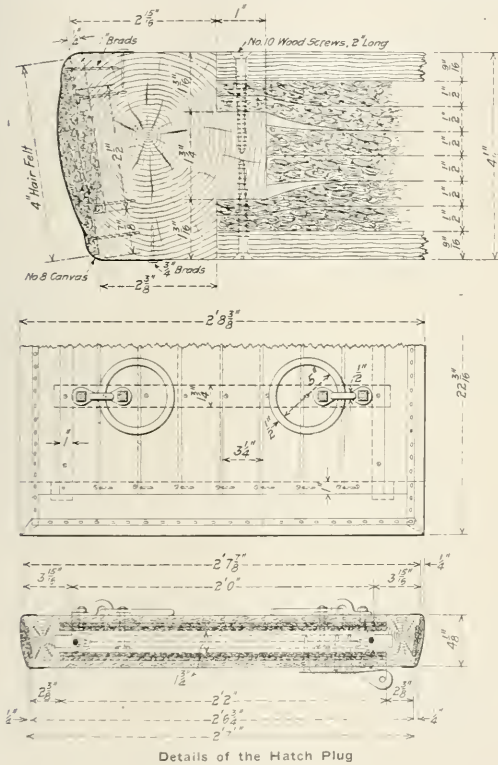 2 15/16"
1"
1/4"
1" Brads
No.10 Wood Screws, 2" Long
4" Hair Felt
2 1/2"
1 3/4"
9/16"
1/2"
1/2"
1/2"
1/2"
1/2"
1/2"
9/16"
No 8 Canvas
3/4" Brads
2 3/8"
2'8 3/8"
1 3/4"
5"
1/2"
1/2"
1"
3 1/4"
22 3/16"
2'7 7/8"
1/4"
3 15/16"
2'0"
3 15/16"
4 1/8"
1 3/4"
2 3/8"
2'2"
2 3/8"
2'6 3/4"
2'7 1/4"
Details of the Hatch Plug